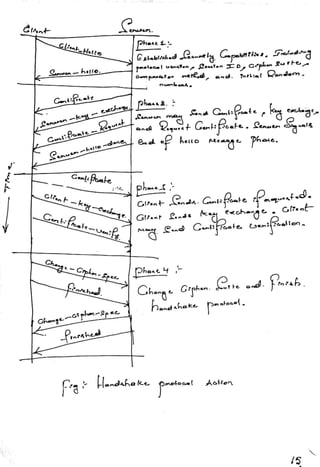 Client Server
Client-Hello
Server - hello.
Phase 1:-
Established Security Capabilities, Including
protocol version, Session ID, Cipher Suite,
Compression method, and Initial Random.
numbers.
Certificate
Server - key - exchange
Certificate - Request
Server - hello - done
Phase 2. :-
Server may Send Certificate, key exchange,
and Request Certificate. Server Signals
End of hello message phase.
Time
Certificate
Client - key - exchange
Certificate - verify
phase 3 :-
Client Sends Certificate if requested.
Client Sends key exchange. Client
may Send Certificate verification.
Change - Cipher - Spec
Finished.
Change - Cipher - Spec
Finished
phase 4 :-
Change Cipher Suite and Finish
handshake protocol.
Fig :- Handshake protocol Action
15